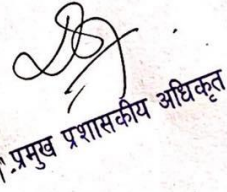 प्रमुख प्रशासकीय अधिकृत